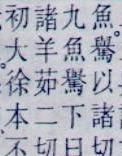 魚譽以諸切
九魚譽下曰
諸羊茹二切
初大徐本不